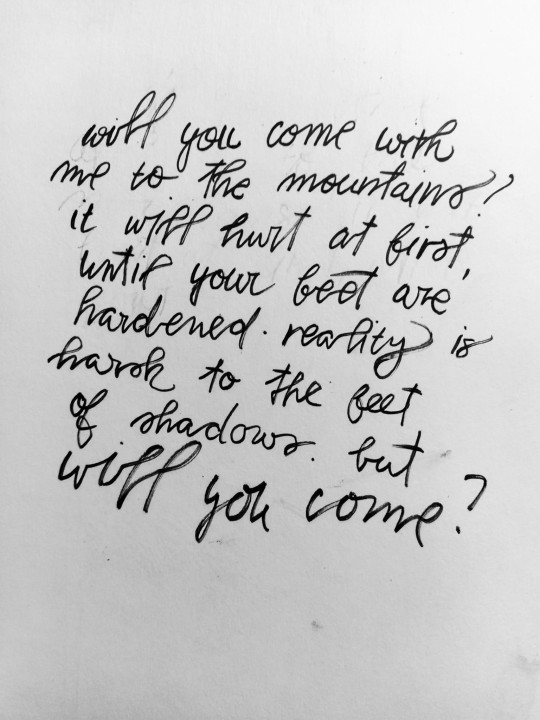 will you come with
me to the mountains?
it will hurt at first,
until your feet are
hardened. reality is
harsh to the feet
of shadows. but
will you come?